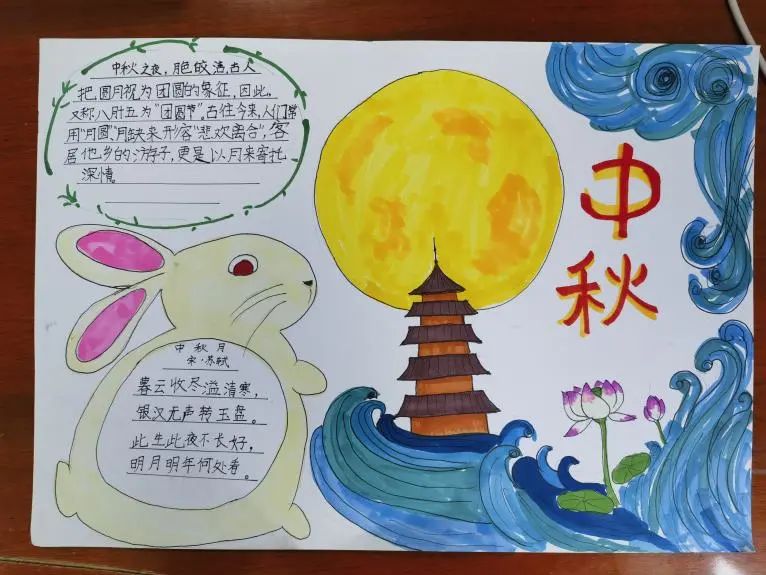 中秋之夜，月色皎洁，古人
把圆月视为团圆的象征，因此，
又称八月十五为"团圆节"，古往今来，人们常
用"月圆"月缺来形容"悲欢离合"，客
居他乡的游子，更是以月来寄托
深情。
中秋
中秋月
宋·苏轼
暮云收尽溢清寒，
银汉无声转玉盘。
此生此夜不长好，
明月明年何处看。